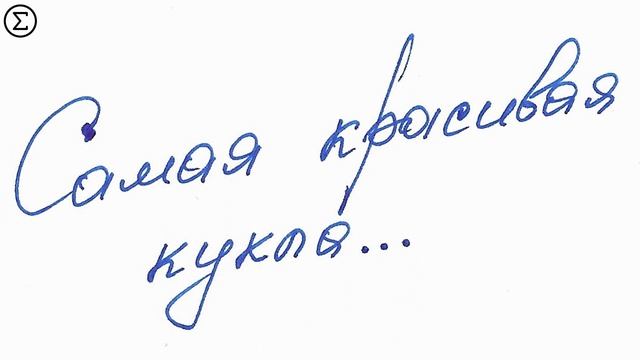 Σ
Самая красивая
кукла...